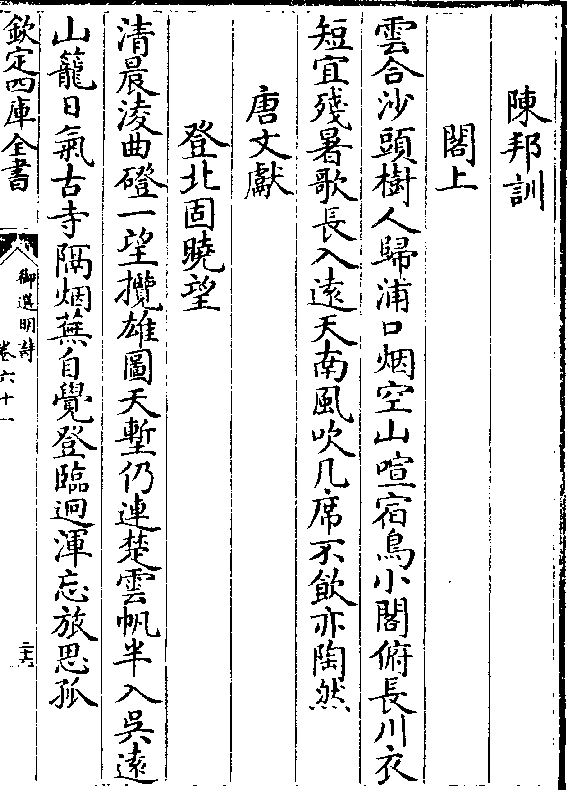 陳邦訓
閣上
雲合沙頭樹人歸浦口烟空山喧宿鳥小閣俯長川衣
短宜殘暑歌長入遠天南風吹几席不飲亦陶然
唐文獻
登北固曉望
清晨淩曲磴一望攬雄圖天塹仍連楚雲帆半入吳遠
山籠日氣古寺隔烟蕪自覺登臨迥渾忘旅思孤
欽定四庫全書
御選明詩
卷六十一
二十六